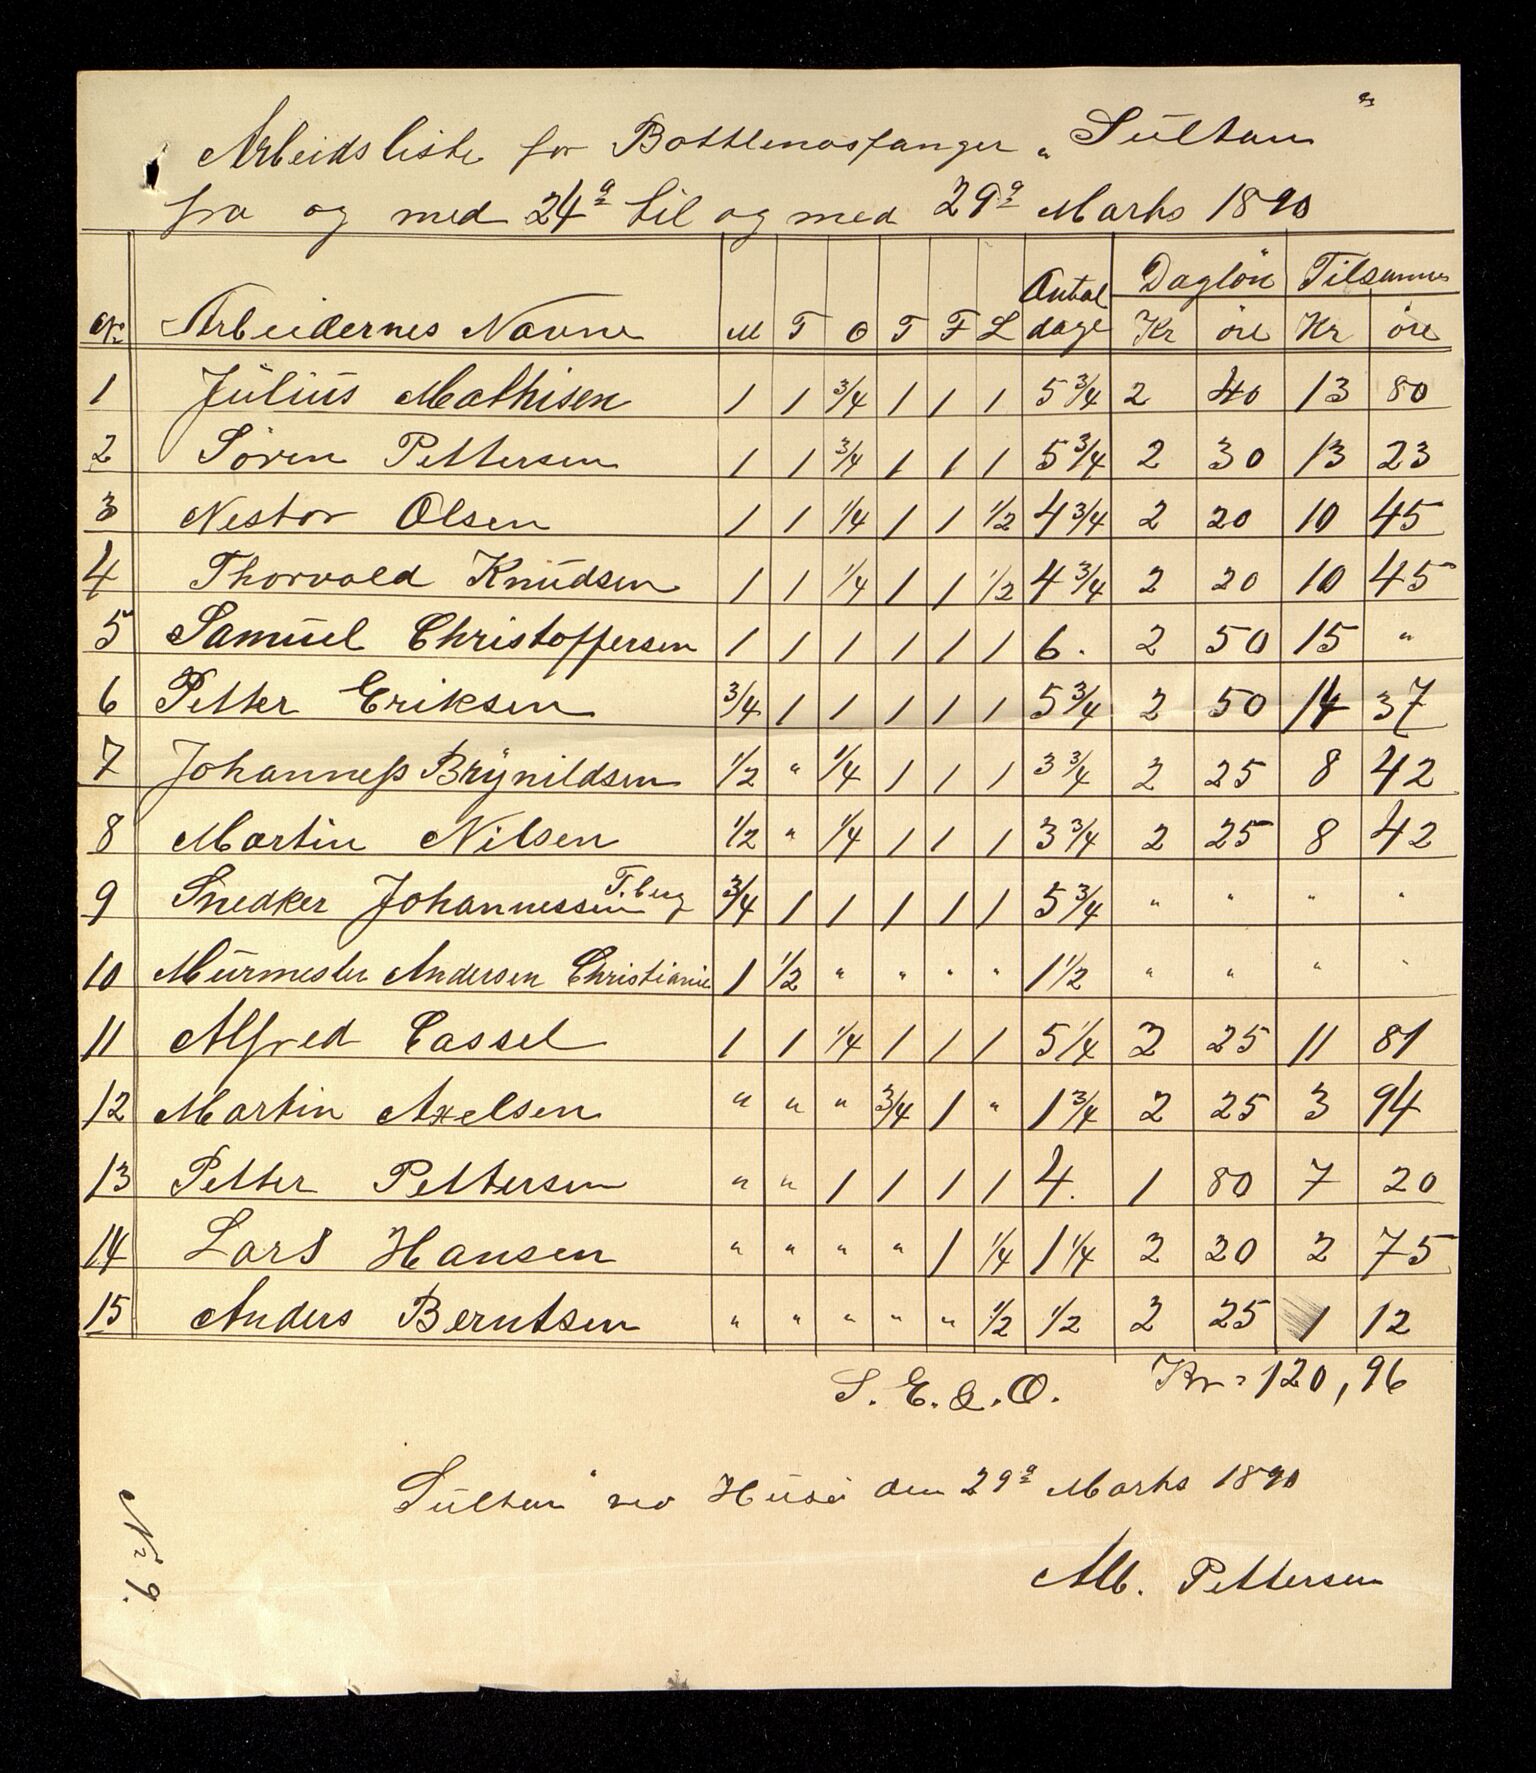 Arbeidsliste for Bottlenosfanger „Sultan"
fra og med 24de til og med 29de Marts 1890
No Arbeidernes Navne M T O T F L Antal dage Daglön Kr öre Tilsammen Kr öre
1 Julius Mathisen 1 1 3/4 1 1 1 5 3/4 2 40 13 80
2 Sören Pettersen 1 1 3/4 1 1 1 5 3/4 2 30 13 23
3 Nestor Olsen 1 1 1/4 1 1 1/2 4 3/4 2 20 10 45
4 Thorvald Knudsen 1 1 1/4 1 1 1/2 4 3/4 2 20 10 45
5 Samuel Christoffersen 1 1 1 1 1 1 6. 2 50 15 "
6 Petter Eriksen 3/4 1 1 1 1 1 5 3/4 2 50 14 37
7 Johanness Brynildsen 1/2 " 1/4 1 1 1 3 3/4 2 25 8 42
8 Martin Nilsen 1/2 " 1/4 1 1 1 3 3/4 2 25 8 42
9 Snedker Johannessen T.berg 3/4 1 1 1 1 1 5 3/4 " " " "
10 Murmester Andersen Christiania 1 1/2 " " " " 1 1/2 " " " "
11 Alfred Cassel 1 1 1/4 1 1 1 5 1/4 2 25 11 81
12 Martin Axelsen " " " 3/4 1 " 1 3/4 2 25 3 94
13 Petter Pettersen " " 1 1 1 1 4. 1 80 7 20
14 Lars Hansen " " " " 1 1/4 1 1/4 2 20 2 75
15 Anders Berntsen " " " " " 1/2 1/2 2 25 1 12
S. E. & O. Kr = 120,96
Sultan" ved Husö den 29de Marts 1890
Alb. Pettersen
No 9.